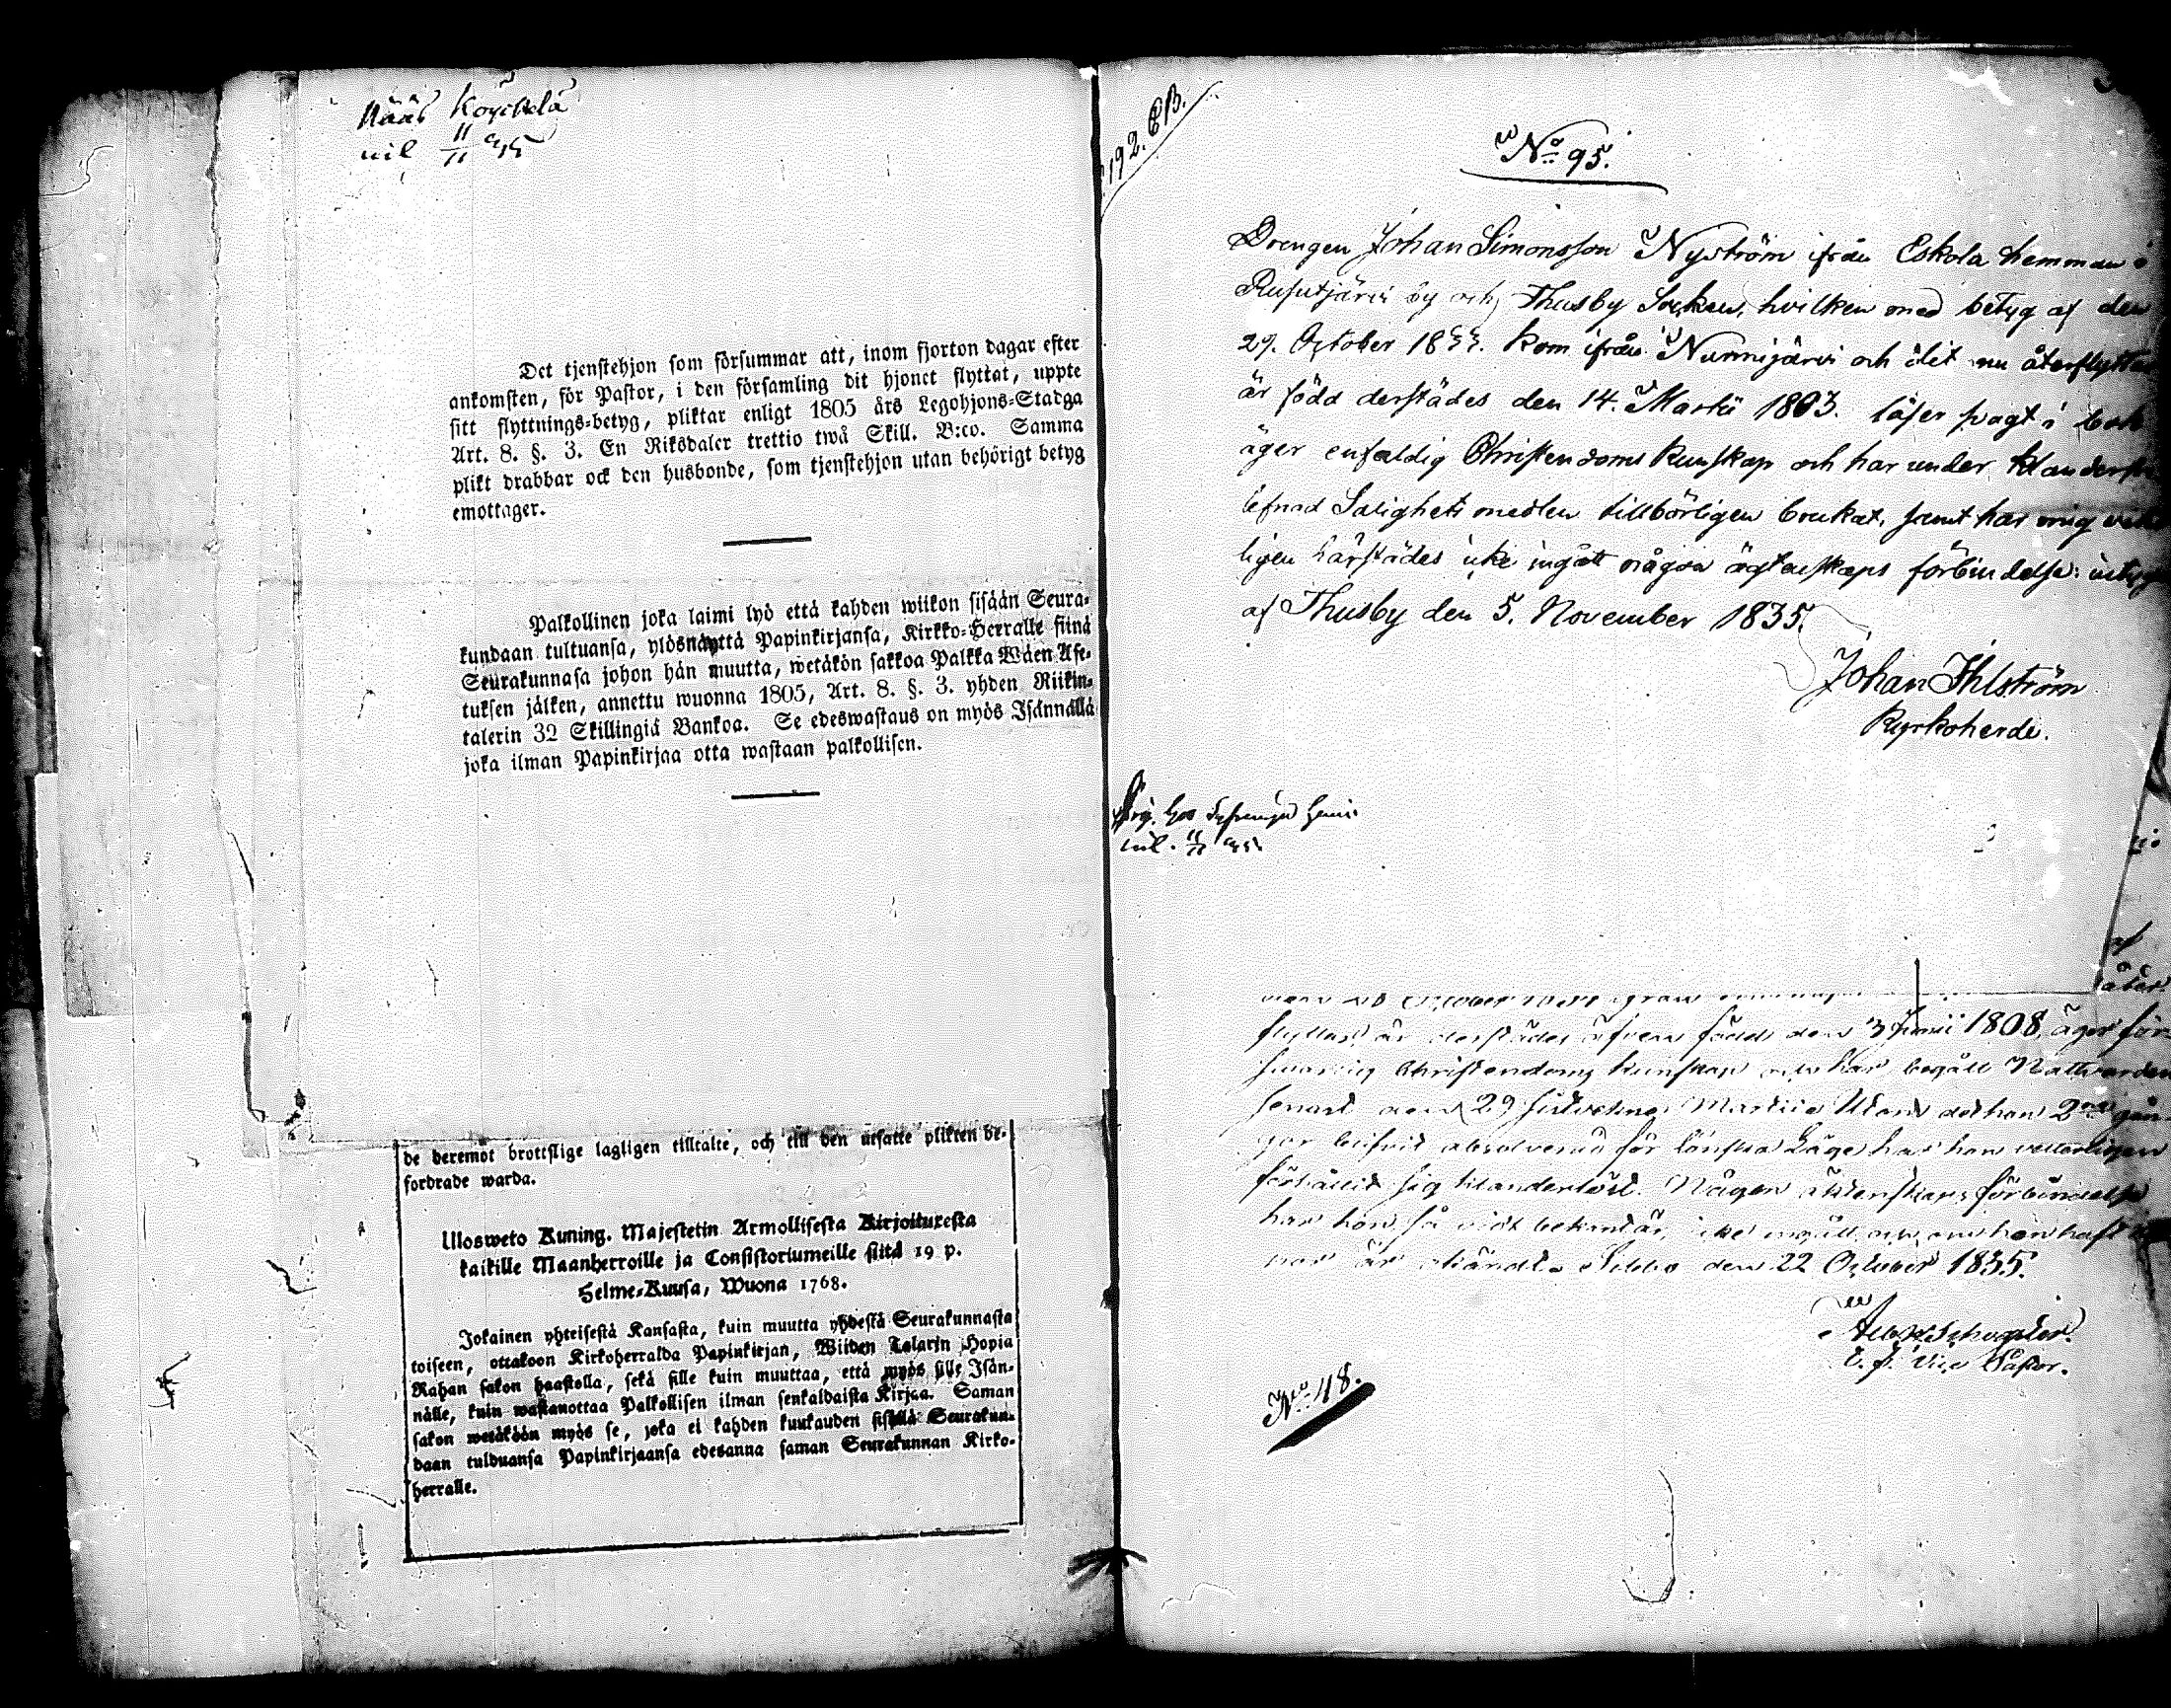 Nääs
nil 11/11
Det tjenstehjon som försummar att, inom fjorton dagar efter
ankomsten, för Pastor, i den församling dit hjonet flyttat, uppte
sitt flyttnings-betyg, pliktar enligt 1805 års Legohjons-Stadga
Art. 8. §. 3. En Riksdaler trettio twå Skill. B:co. Samma
plikt drabbar ock den husbonde, som tjenstehjon utan behörigt betyg
emottager.
Palkollinen joka laimi lyö että kahden wiikon sisään Seura-
kundaan tultuansa, ylösnäyttä Papinkirjansa, Kirkko-Herralle siinä
Seurakunnasa johon hän muutta, wetäkön sakkoa Palkka Wäen Ase-
tuksen jälken, annettu wuonna 1805, Art. 8. §. 3. yhden Riikin-
talerin 32 Skillingiä Bankoa. Se edeswastaus on myös Isännällä
joka ilman Papinkirjaa otta wastaan palkollisen.
de deremot brottslige lagligen tilltalte, och till den utsatte plikten be-
fordrade warda.
Ulosweto Kuning. Majestetin Armollisesta Kirjoituxesta
kaikille Maanherroille ja Consistoriumeille siitä 19 p.
Helme-Kuusa, Wuona 1768.
Jokainen yhteisestä Kansasta, kuin muutta yhdestä Seurakunnasta
toiseen, ottakoon Kirkoherralda Papinkirjan, Wiiden Talarin Hopia
Rahan sakon haastolla, sekä sille kuin muuttaa, että myös sille Isän-
nälle, kuin wastanottaa Palkollisen ilman senkaldaista Kirjaa. Saman
sakon wetäköön myös se, joka ei kahden kuukauden sisällä Seurakun-
daan tulduansa Papinkirjaansa edesanna saman Seurakunnan Kirko-
herralle.
192. EB.
No 95.
Drengen Johan Simonsson Nyström ifrån Eskola hemman i
Rusutjärvi by och Thusby Socken, hvilken med betyg af den
29. October 18 kom ifrån Nurmijärvi och dit nu återflyttar
är född derstädes den 14. Martii 1803. läser svagt i bok
äger enfaldig Christendoms kunskap och har under
lefnad Salighets medlen tillbörligen brukat, samt har mig
ligen härstädes icke ingått någon ägtenskaps förbindelse: intygar
af Thusby den 5. November 1835.
Johan Ihlström
Kyrkoherde.
nil. 11/11
af
åter
flyttar är derstädes äfven född den 3 Junii 1808, äger för-
svarlig Christendoms kunskap och har begått Nattvarden
senast den 29 sistvekne Martii. Utom det han 2ne gån-
gor blifvit absolverad för lönska Läge har han vetterligen
förhållit sig klanderlöst. Någon äktenskaps förbindelse
har han så vidt bekant är, icke ingått, och om han haft
är okändt. Sibbo den 22 October 1835.
v. Pastor.
No 48.